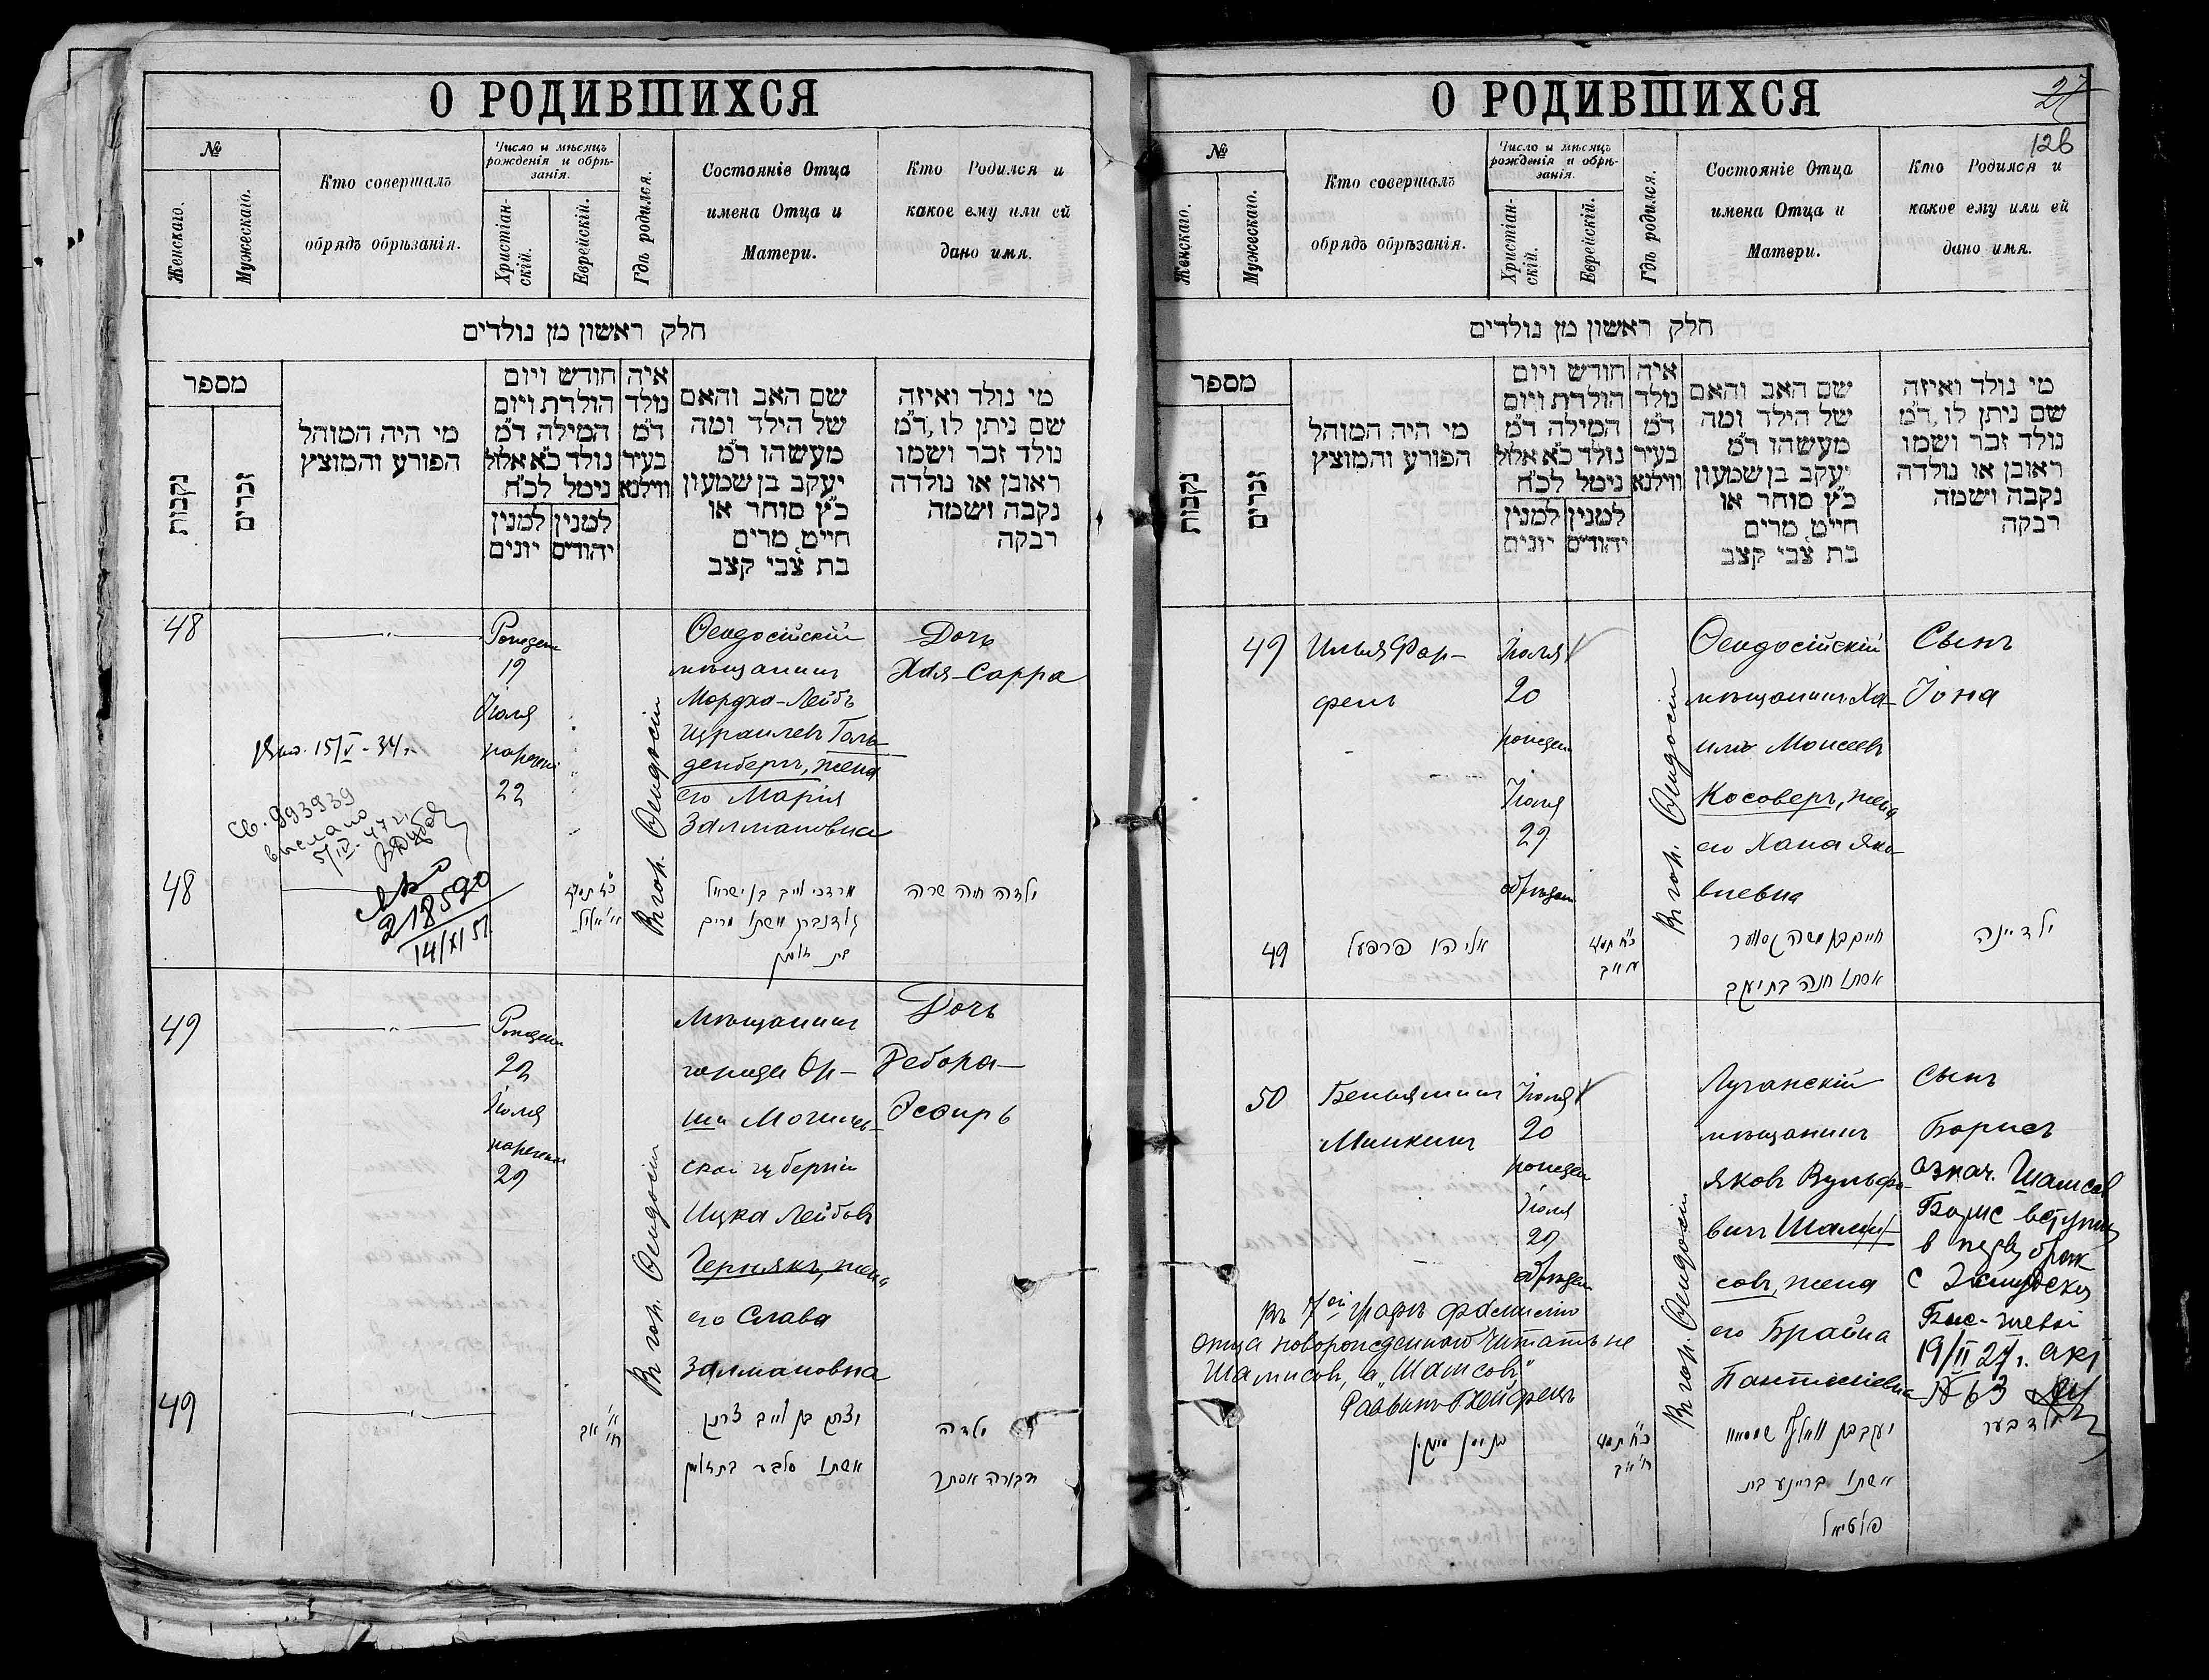 О РОДИВШИХСЯ
№
Женскаго.
Мужескаго.
Кто совершалъ
обрядъ обрѣзанія.
Число и мѣсяцъ
рожденія и обрѣ-
занія.
Христіан-
скій.
Еврейскій.
Гдѣ родился.
Состояніе Отца
имена Отца и
Матери.
Кто Родился и
какое ему или ей
дано имя.
חלק ראשון מן נולדים
מספר
נקבות
זכרים
מי היה המוהל
הפורע והמוצץ
חודש ויום
הולדת ויום
המילה ד״מ
נולד כ״א אלול
נימל לכ״ח
למנין למנין
יהודים יונים
איה
נולד
ד״מ
בעיר
ווילנא
שם האב והאם
של הילד ומה
מעשהו ד״מ
יעקב בן שמעון
כ״ץ סוחר או
חייט, מרים
בת צבי קצב
מי נולד ואיזה
שם ניתן לו, ד״מ
נולד זכר ושמו
ראובן או נולדה
נקבה ושמה
רבקה
48
19
Іюля
22
Въ гор. Ѳеодосіи
Ѳеодосійскій
мѣщанинъ
Мордха-Лейбъ
Израилевъ Голь
денбергъ, жена
его Марія
Залмановна
Дочь
Хая-Сарра
15/V - 34 г.
Св. 993939
выслано
218590
14/XI 51
48
מרדכי לייב בן ישראל
גולדנברג אשתו מרים
בת זלמן
ילדה חיה שרה
49
22
Іюля
29
Въ гор. Ѳеодосіи
Мѣщанинъ
города Ор-
ши Могилев-
ской губерніи
Ицка Лейбовъ
Чернякъ, жена
его Слава
Залмановна
Дочь
Дебора-
Эсѳирь
49
יצחק בן לייב צרניק
אשתו סלבע בת זלמן
ילדה
דבורה אסתר
О РОДИВШИХСЯ
27
126
№
Женскаго.
Мужескаго.
Кто совершалъ
обрядъ обрѣзанія.
Число и мѣсяцъ
рожденія и обрѣ-
занія.
Христіан-
скій.
Еврейскій.
Гдѣ родился.
Состояніе Отца
имена Отца и
Матери.
Кто Родился и
какое ему или ей
дано имя.
חלק ראשון מן נולדים
מספר
נקבות
זכרים
מי היה המוהל
הפורע והמוצץ
חודש ויום
הולדת ויום
המילה ד״מ
נולד כ״א אלול
נימל לכ״ח
למנין למנין
יהודים יונים
איה
נולד
ד״מ
בעיר
ווילנא
שם האב והאם
של הילד ומה
מעשהו ד״מ
יעקב בן שמעון
כ״ץ סוחר או
חייט, מרים
בת צבי קצב
מי נולד ואיזה
שם ניתן לו, ד״מ
נולד זכר ושמו
ראובן או נולדה
נקבה ושמה
רבקה
49
Илья Фар-
фель
Іюля
20
рожден
Іюля
27
обрѣзан
Въ гор. Ѳеодосіи
Ѳеодосійскій
мѣщанинъ Ха-
имъ Моисеевъ
Косоверъ, жена
его Хана Яко-
влевна
Сынъ
Іона
49
אליהו פרפעל
חיים בן משה קסאווער
אשתו חנה בת יעקב
ילד יונה
50
Беньяминъ
Минкинъ
Іюля
20
рожден
Іюля
27
обрѣзан
Въ гор. Ѳеодосіи
Луганскій
мѣщанинъ
Яковъ Вульфо-
вичъ Шами-
совъ, жена
его Брайна
Пантилевна
Сынъ
Борисъ
означ. Шамсов
Борис вступил
в перв. брак
с
19/II 27 г. акт
№ 63
Въ 7ой графѣ фамилію
отца новорожденнаго читать не
Шамисовъ, а „Шамсовъ"
Раввинъ
בנימין מינקין
יעקב בן וואלף
אשתו בריינע בת
ילד בער